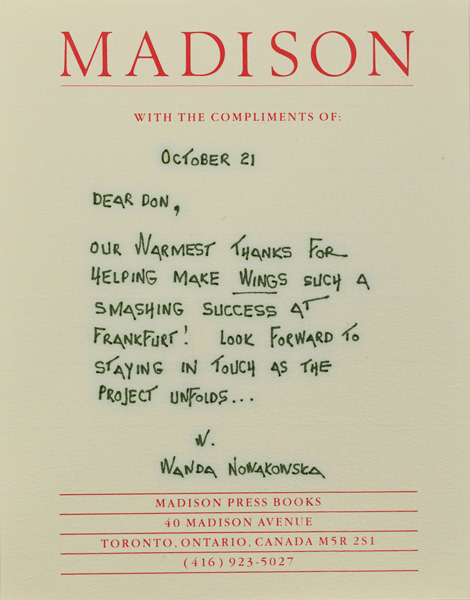 MADISON
WITH THE COMPLIMENTS OF:
OCTOBER 21
DEAR DON,
OUR WARMEST THANKS FOR
HELPING MAKE WINGS SUCH A
SMASHING SUCCESS AT
FRANKFURT! LOOK FORWARD TO
STAYING IN TOUCH AS THE
PROJECT UNFOLDS...
W.
WANDA NOWAKOWSKA
MADISON PRESS BOOKS
40 MADISON AVENUE
TORONTO, ONTARIO, CANADA M5R 2S1
(416) 923-5027